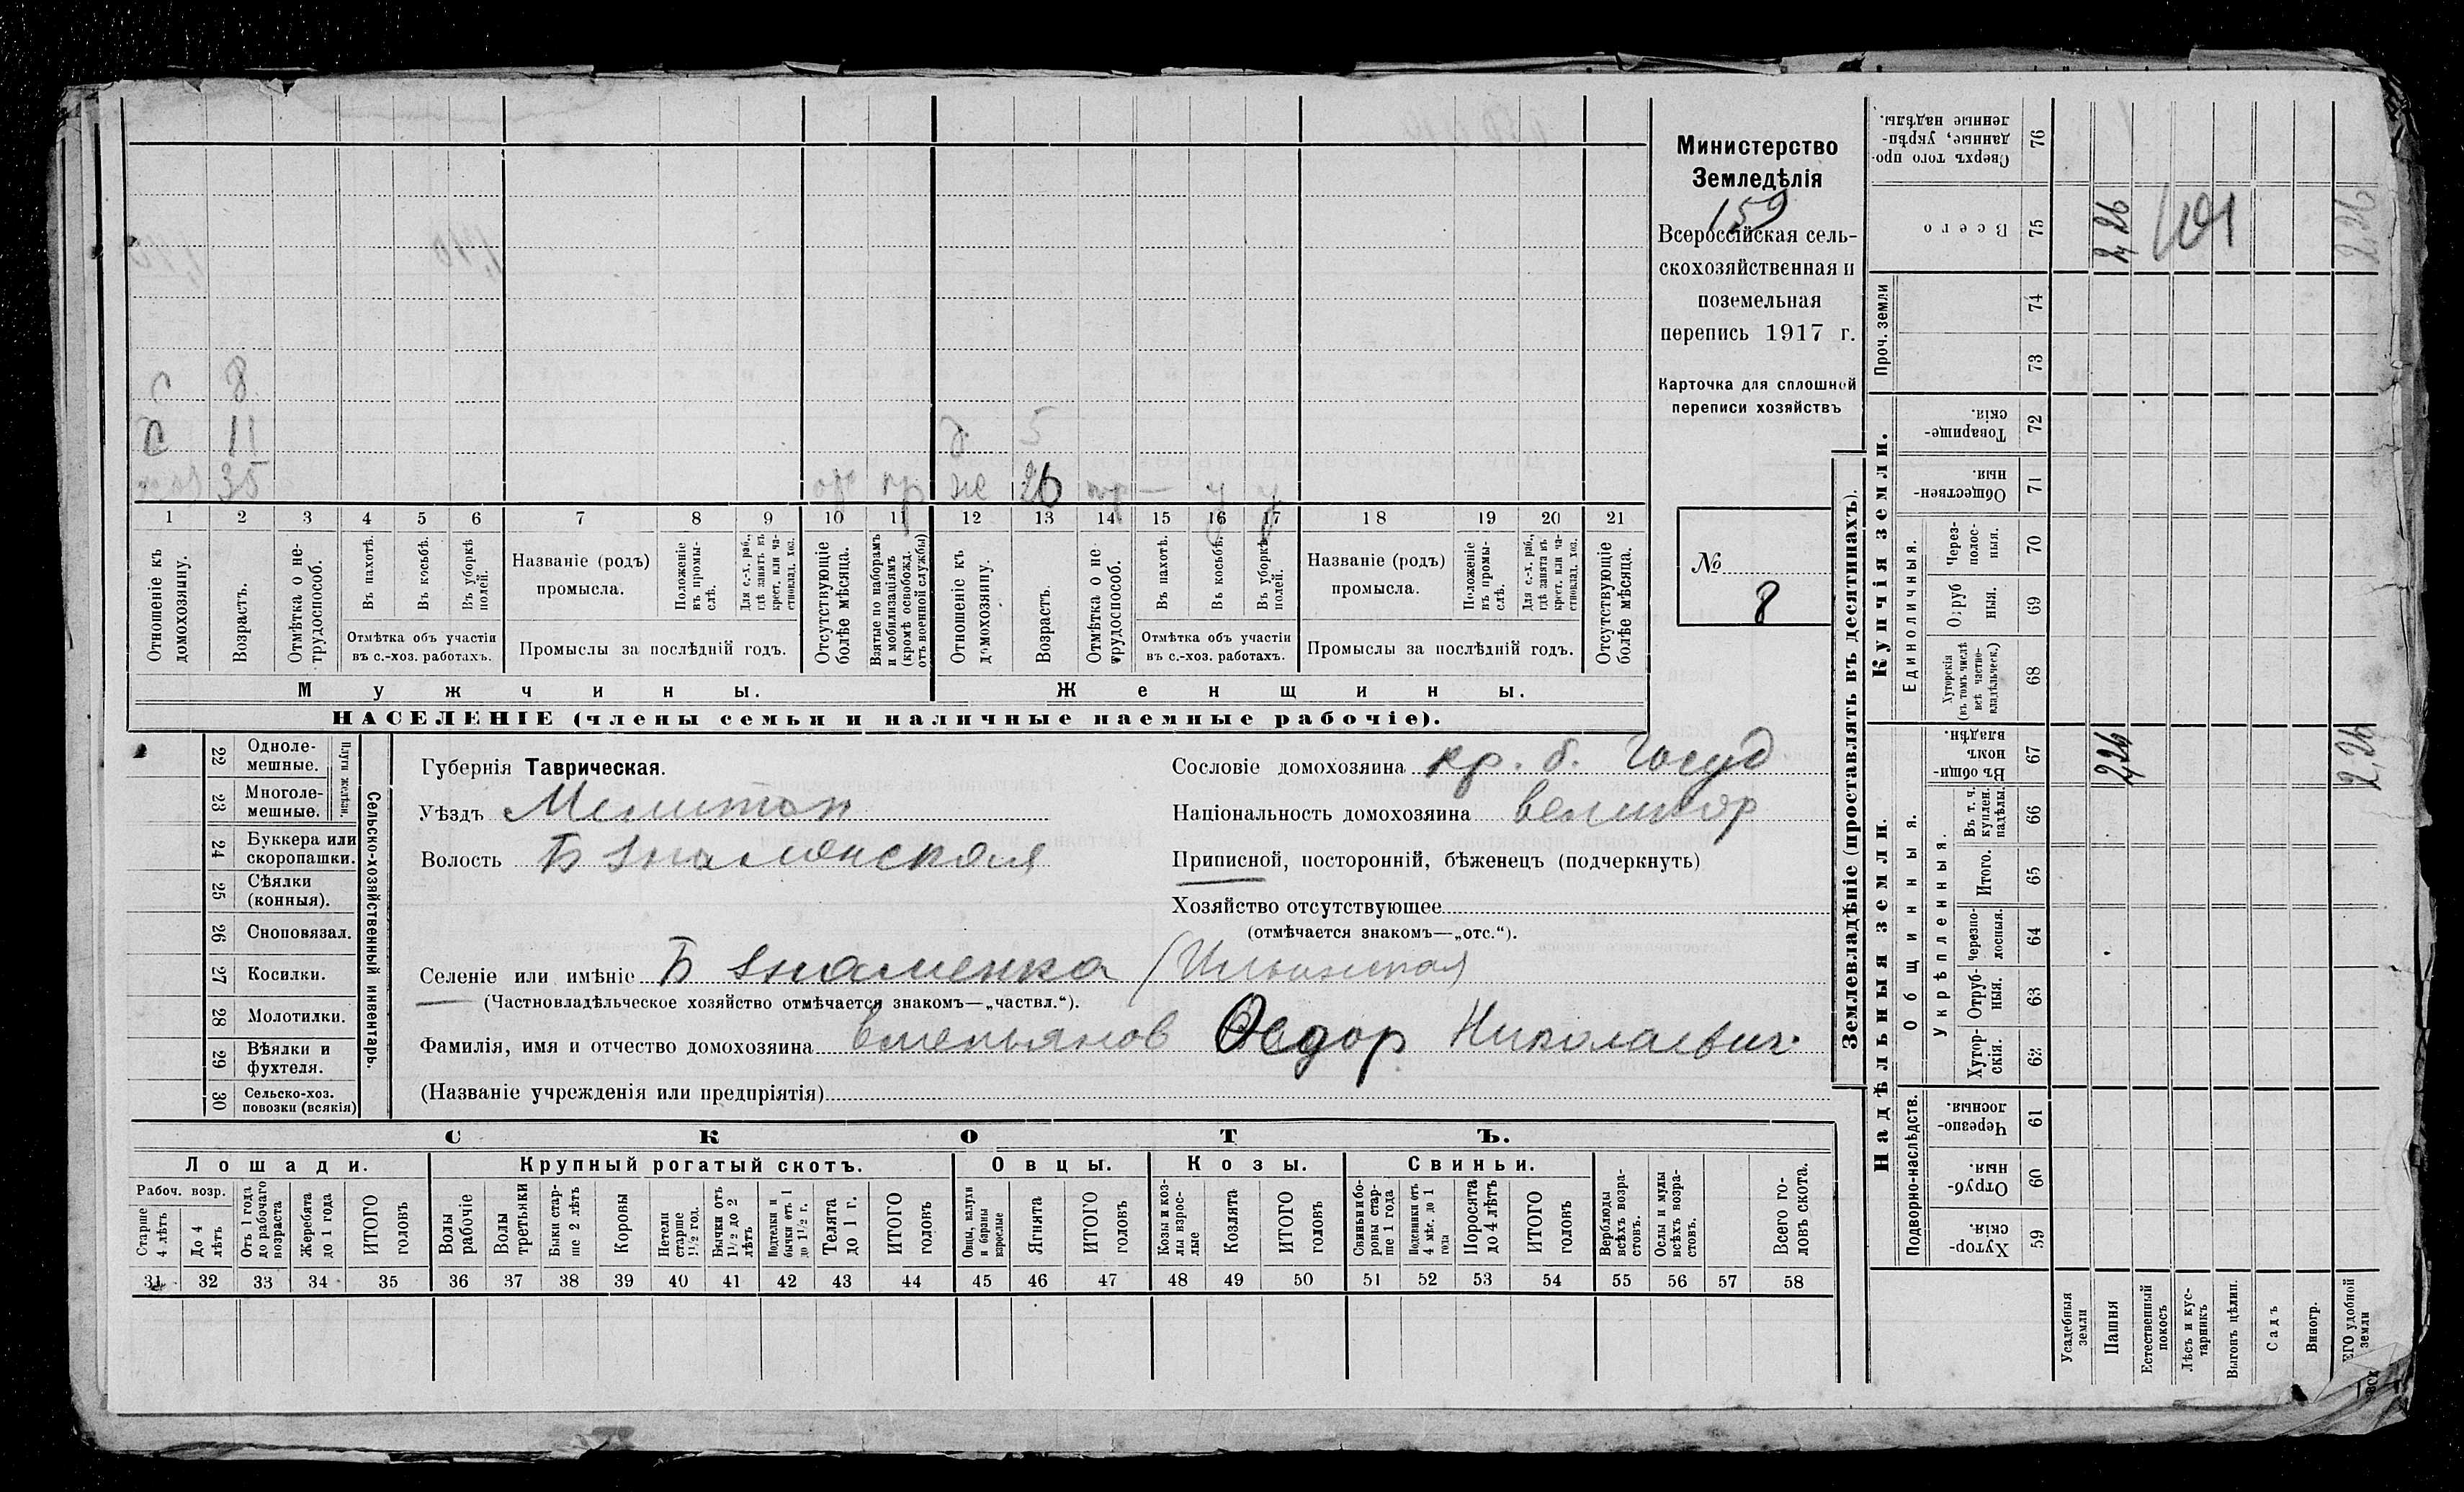 Министерство
Земледѣлія
159
Всероссійская сель-
скохозяйственная и
поземельная
перепись 1917 г.
Карточка для сплошной
переписи хозяйствъ
№
8
с 8
с 11 д. 5
35 пр ж 26 — у у
1 2 3 4 5 6 7 8 9 10 11 12 13 14 15 16 17 18 19 20 21
Отношеніе къ домохозяину.
Возрастъ.
Отмѣтка о не-трудоспособ.
Въ пахотѣ.
Въ косьбѣ.
Въ уборкѣ полей.
Отмѣтка объ участіи
въ с.-хоз. работахъ.
Названіе (родъ)
промысла.
Положеніе въ промы-слѣ.
Для с.-х. раб., гдѣ занятъ въ крест. или ча-стновлад. хоз.
Промыслы за послѣдній годъ.
Отсутствующіе болѣе мѣсяца.
Взятые по наборамъ и мобилизаціямъ (кромѣ освобожд. отъ военной службы)
Отношеніе къ домохозяину.
Возрастъ.
Отмѣтка о не трудоспособ.
Въ пахотѣ.
Въ косьбѣ.
Въ уборкѣ полей.
Отмѣтка объ участіи
въ с.-хоз. работахъ.
Названіе (родъ)
промысла.
Положеніе въ промы-слѣ.
Для с.-х. раб., гдѣ занята въ крест. или ча-стновлад. хоз.
Промыслы за послѣдній годъ.
Отсутствующіе болѣе мѣсяца.
Мужчины. Женщины.
НАСЕЛЕНІЕ (члены семьи и наличные наемные рабочіе).
Сельско-хозяйственный инвентарь.
Плуги желѣзн.
22 Одноле-мешные.
23 Многоле-мешные.
24 Буккера или скоропашки.
25 Сѣялки (конныя).
26 Сноповязал.
27 Косилки.
28 Молотилки.
29 Вѣялки и фухтеля.
30 Сельско-хоз. повозки (всякія)
Губернія Таврическая.
Уѣздъ Мелитоп
Волость Б Знаменская
Селеніе или имѣніе Б Знаменка (Ильинская)
(Частновладѣльческое хозяйство отмѣчается знакомъ—„частвл.“).
Фамилія, имя и отчество домохозяина Емельянов Федор Николаевич
(Названіе учрежденія или предпріятія)
Сословіе домохозяина кр. б. Госуд
Національность домохозяина великор
Приписной, посторонній, бѣженецъ (подчеркнуть)
Хозяйство отсутствующее
(отмѣчается знакомъ—„отс.“).
СКОТЪ.
Лошади. Крупный рогатый скотъ. Овцы. Козы. Свиньи.
Рабоч. возр.
Старше 4 лѣтъ
До 4 лѣтъ
Отъ 1 года до рабочаго возраста
Жеребята до 1 года
ИТОГО головъ
Волы рабочіе
Волы третьяки
Быки стар-ше 2 лѣтъ
Коровы
Нетели старше 1½ год.
Бычки отъ 1½ до 2 лѣтъ
Подтелки и бычки отъ 1 до 1½ г.
Телята до 1 г.
ИТОГО головъ
Овцы, валухи и бараны взрослые
Ягнята
ИТОГО головъ
Козы и коз-лы взрос-лые
Козлята
ИТОГО головъ
Свиньи и бо-ровы стар-ше 1 года
Подсвинки отъ 4 мѣс. до 1 года
Поросята до 4 лѣтъ
ИТОГО головъ
Верблюды всѣхъ возра-стовъ.
Ослы и мулы всѣхъ возра-стовъ.
Всего го-ловъ скота.
31 32 33 34 35 36 37 38 39 40 41 42 43 44 45 46 47 48 49 50 51 52 53 54 55 56 57 58
Землевладѣніе (проставлять въ десятинахъ).
Надѣльныя земли.
Купчія земли.
Проч. земли
Подворно-наслѣдств.
Общинныя.
Укрѣпленныя.
Единоличныя.
59 Хутор-скія.
60 Отруб-ныя.
61 Черезпо-лосныя.
62 Хутор-скія.
63 Отруб-ныя.
64 Черезпо-лосныя.
65 Итого.
66 Въ т. ч. куплен. надѣлы.
67 Въ общи-номъ владѣн.
68 Хуторскія (въ томъ числѣ всѣ частно-владѣльческ.)
69 Отруб ныя.
70 Через-полос-ныя.
71 Обществен-ныя.
72 Товарище-скія.
73
74
75 Всего
76 Сверхъ того про-данные, укрѣп-ленные надѣлы.
Усадебныя земли
Пашня 2,26 2,26
Естественный покосъ
101
Лѣсъ и кус-тарникъ
Выгонъ цѣлин.
Садъ
Виногр.
ВСЕГО удобной земли 2,26 2,26